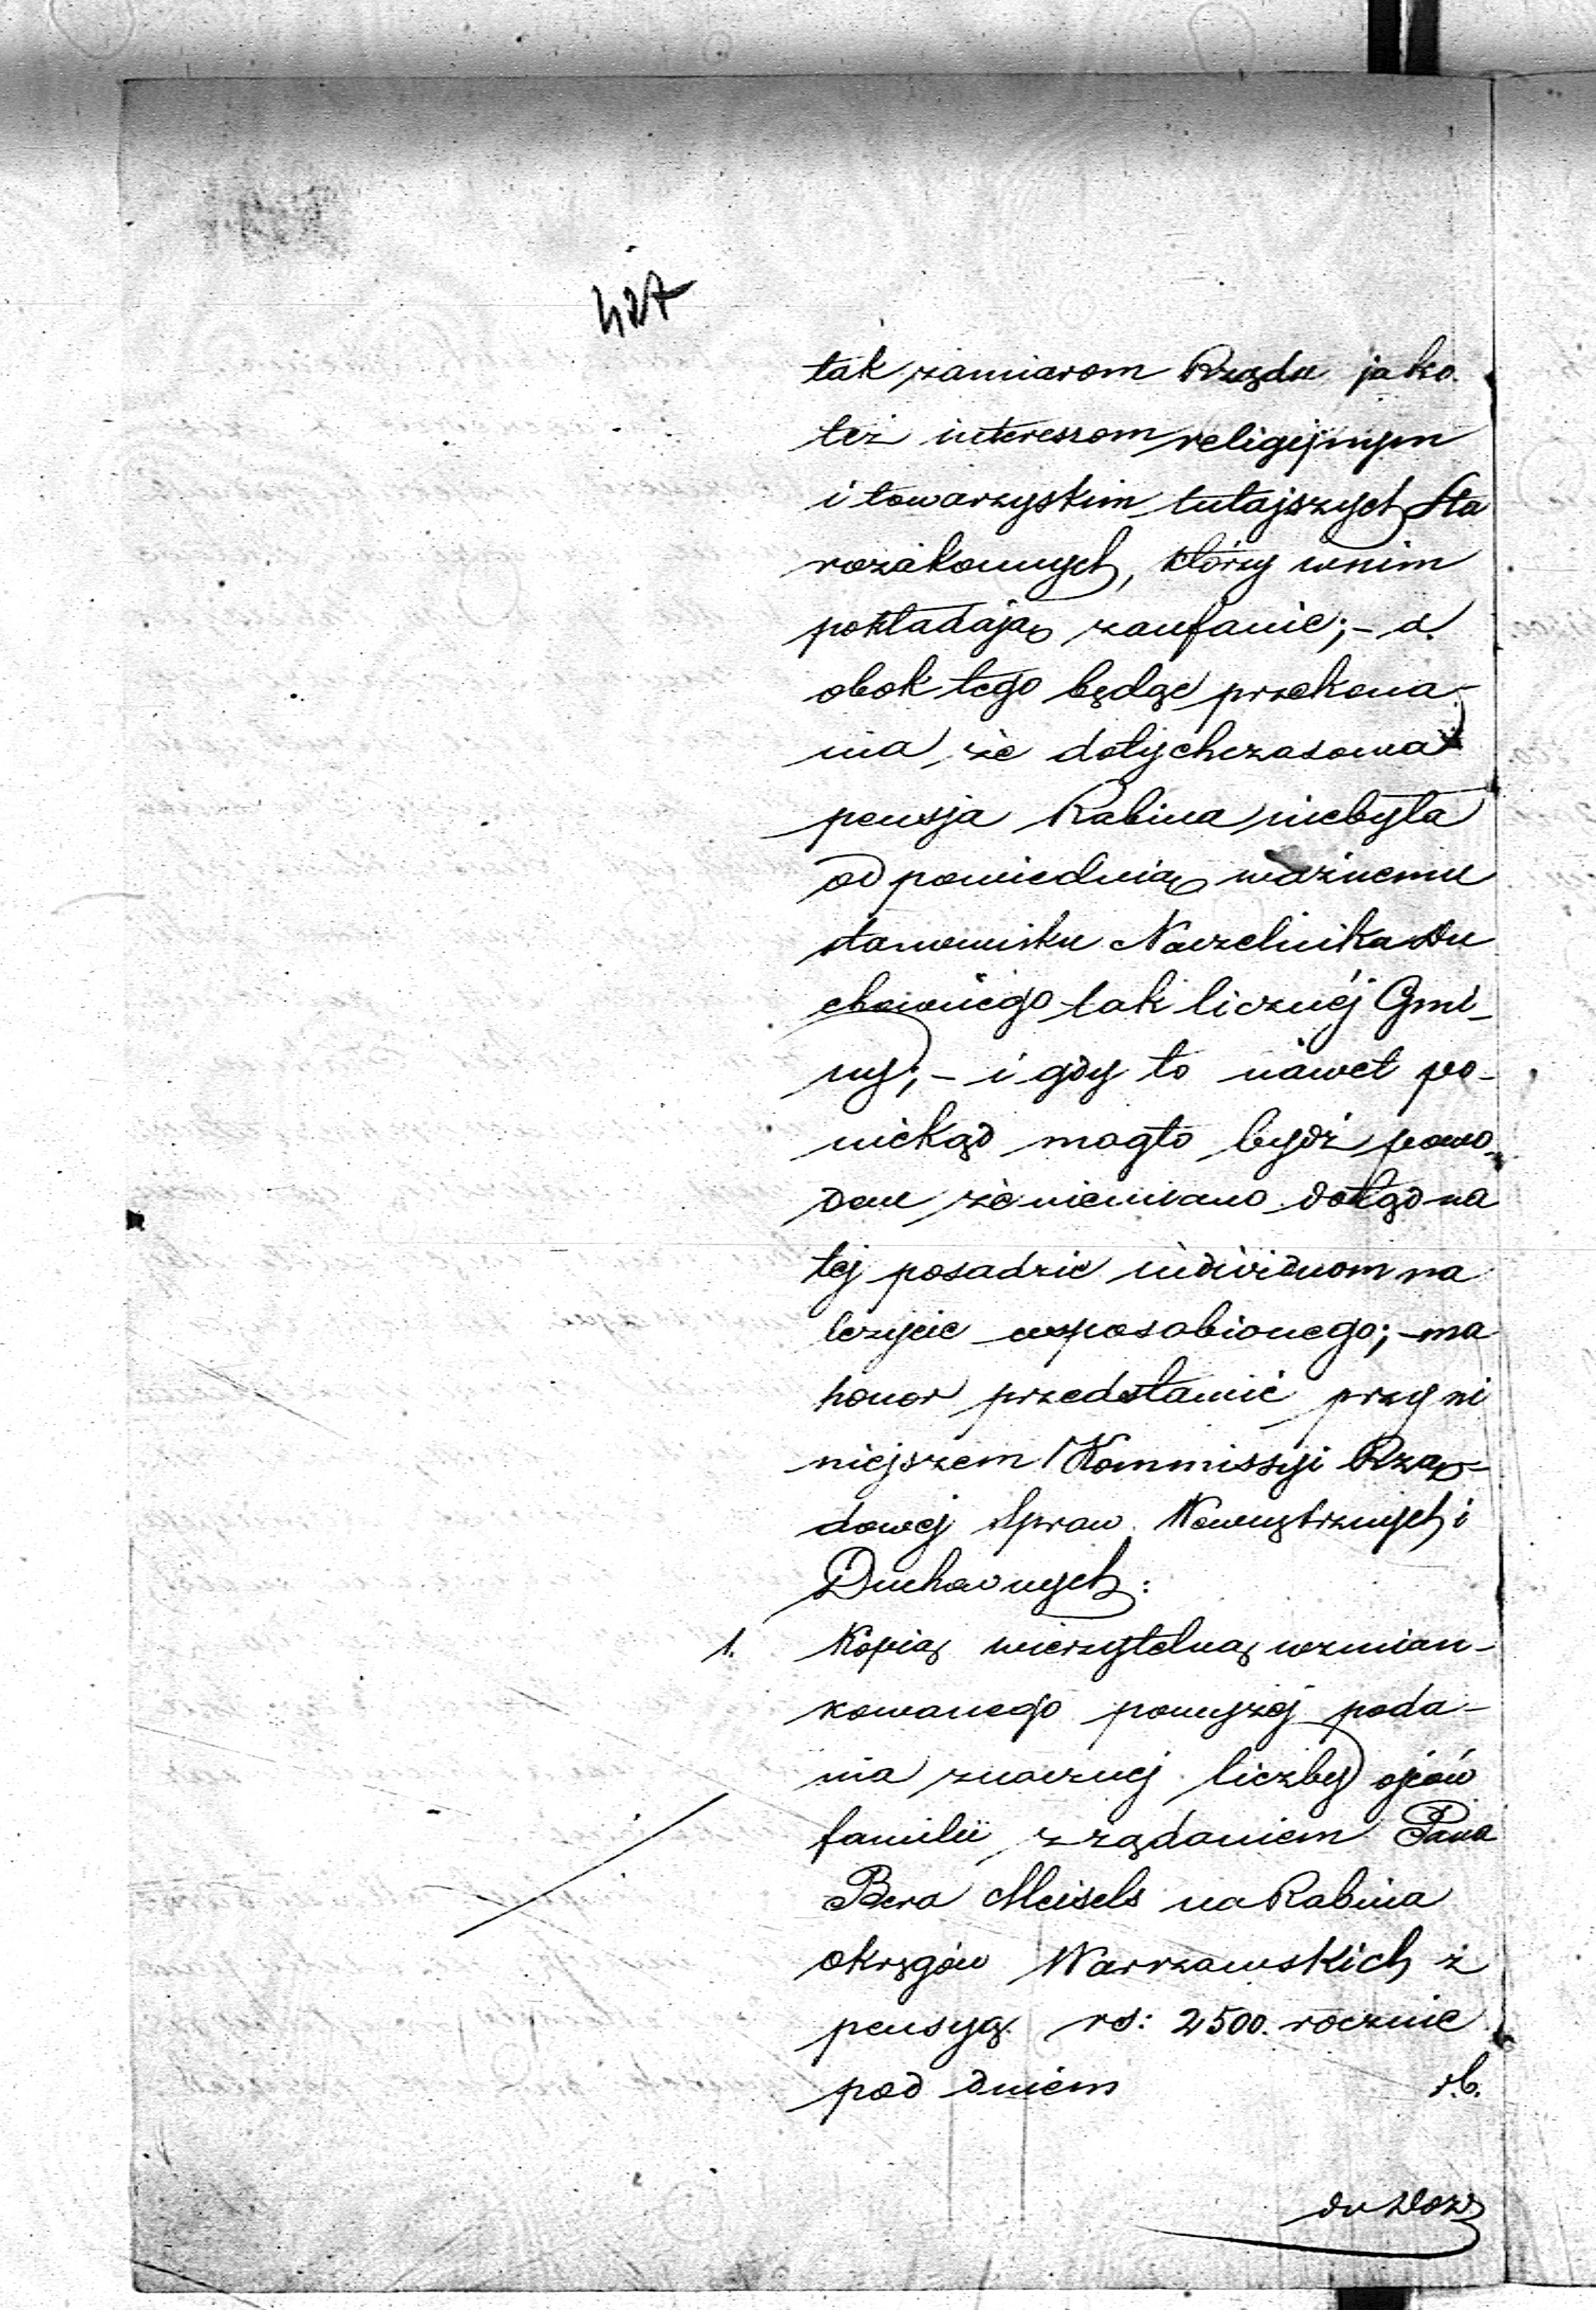 427
tak zamiarom Rządu jako
też interessom religijnym
i towarzyskim tutajszych Sta
rozakonnych, którzy w nim
pokładają zaufanie; – a
obok tego będąc przekona-
nia, że dotychczasowa
pensja Rabina niebyła
odpowiednią ważnemu
stanowisku Naczelnika Du
chownego tak licznéj Gmi-
ny; – i gdy to nawet po-
niekąd mogło bydź powo-
dem że niemiano dotąd na
tej posadzie individuom na
leżycie usposobionego; – ma
honor przedstawić przy ni
niejszem Kommissyi Rzą-
dowej Spraw Wewnętrznych i
Duchownych:
1. Kopią wierzytelną wzmian-
kowanego powyżej poda-
nia znacznej liczby ojców
familii z żądaniem Pana
Bera Meisels na Rabina
okręgów Warszawskich z
pensyą rs: 2500. rocznie
pod dniem r.b.